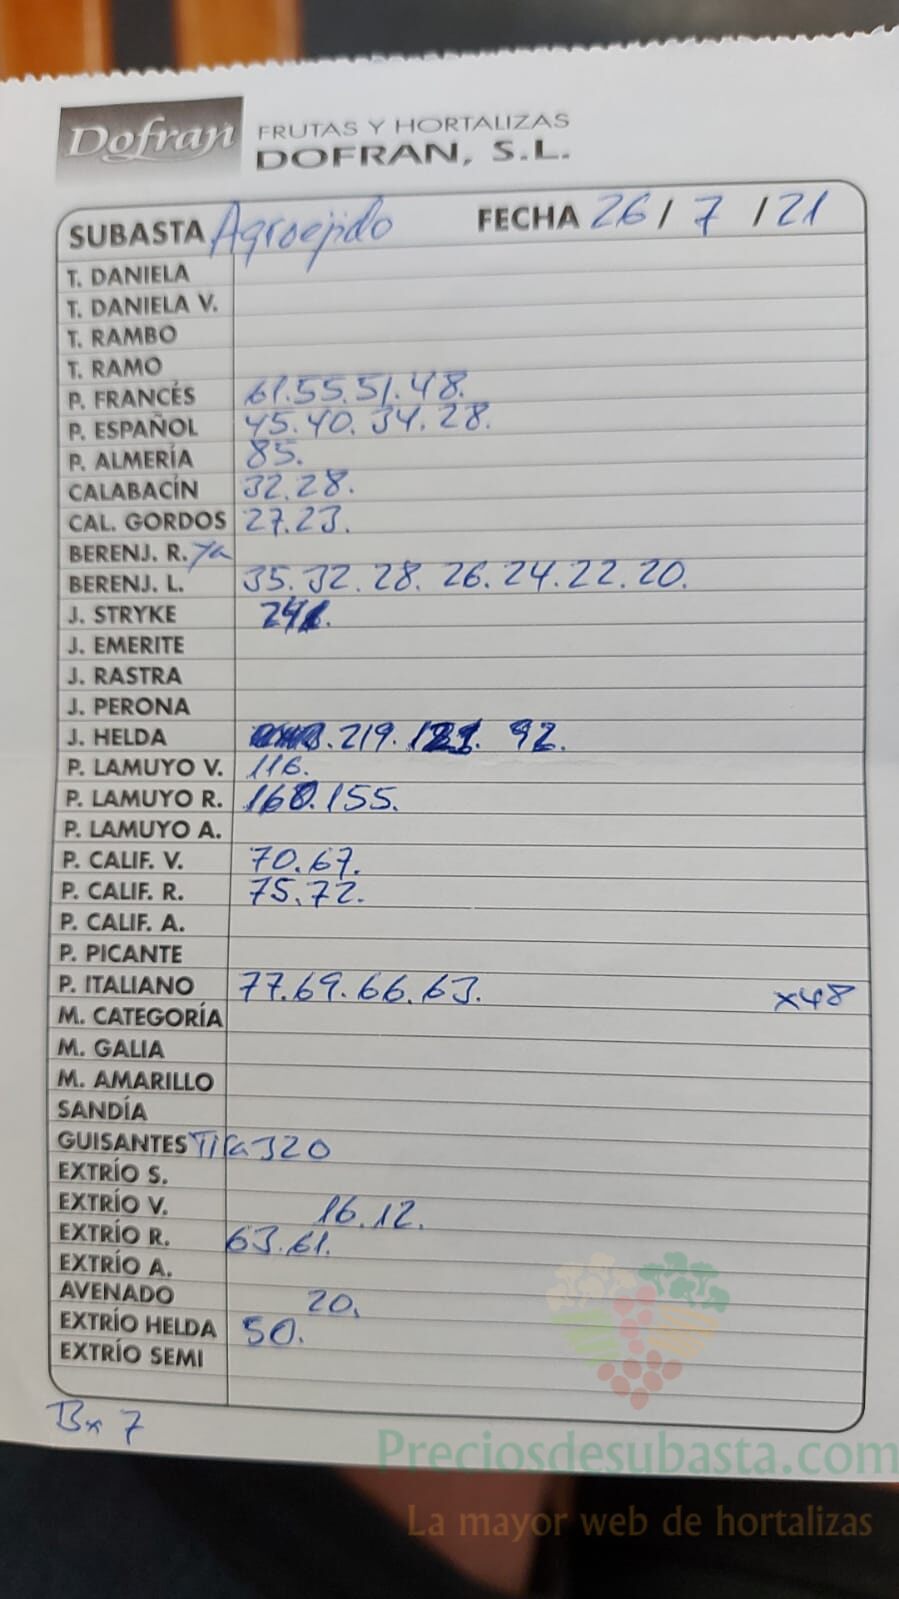 Dofran FRUTAS Y HORTALIZAS
DOFRAN, S.L.
SUBASTA Agroejido FECHA 26/7/21
T. DANIELA
T. DANIELA V.
T. RAMBO
T. RAMO
P. FRANCÉS 61.55.51.48.
P. ESPAÑOL 45.40.34.28.
P. ALMERÍA 85.
CALABACÍN 32.28.
CAL. GORDOS 27.23.
BERENJ. R.
BERENJ. L. 35.32.28.26.24.22.20.
J. STRYKE
J. EMERITE
J. RASTRA
J. PERONA
J. HELDA .219. 92.
P. LAMUYO V. 116.
P. LAMUYO R. 160.155.
P. LAMUYO A.
P. CALIF. V. 70.67.
P. CALIF. R. 75.72.
P. CALIF. A.
P. PICANTE
P. ITALIANO 77.69.66.63. x48
M. CATEGORÍA
M. GALIA
M. AMARILLO
SANDÍA
GUISANTES Tira 320
EXTRÍO S.
EXTRÍO V. 16.12.
EXTRÍO R. 63.61.
EXTRÍO A.
AVENADO 20.
EXTRÍO HELDA 50.
EXTRÍO SEMI
Bx 7
Preciosdesubasta.com
La mayor web de hortalizas